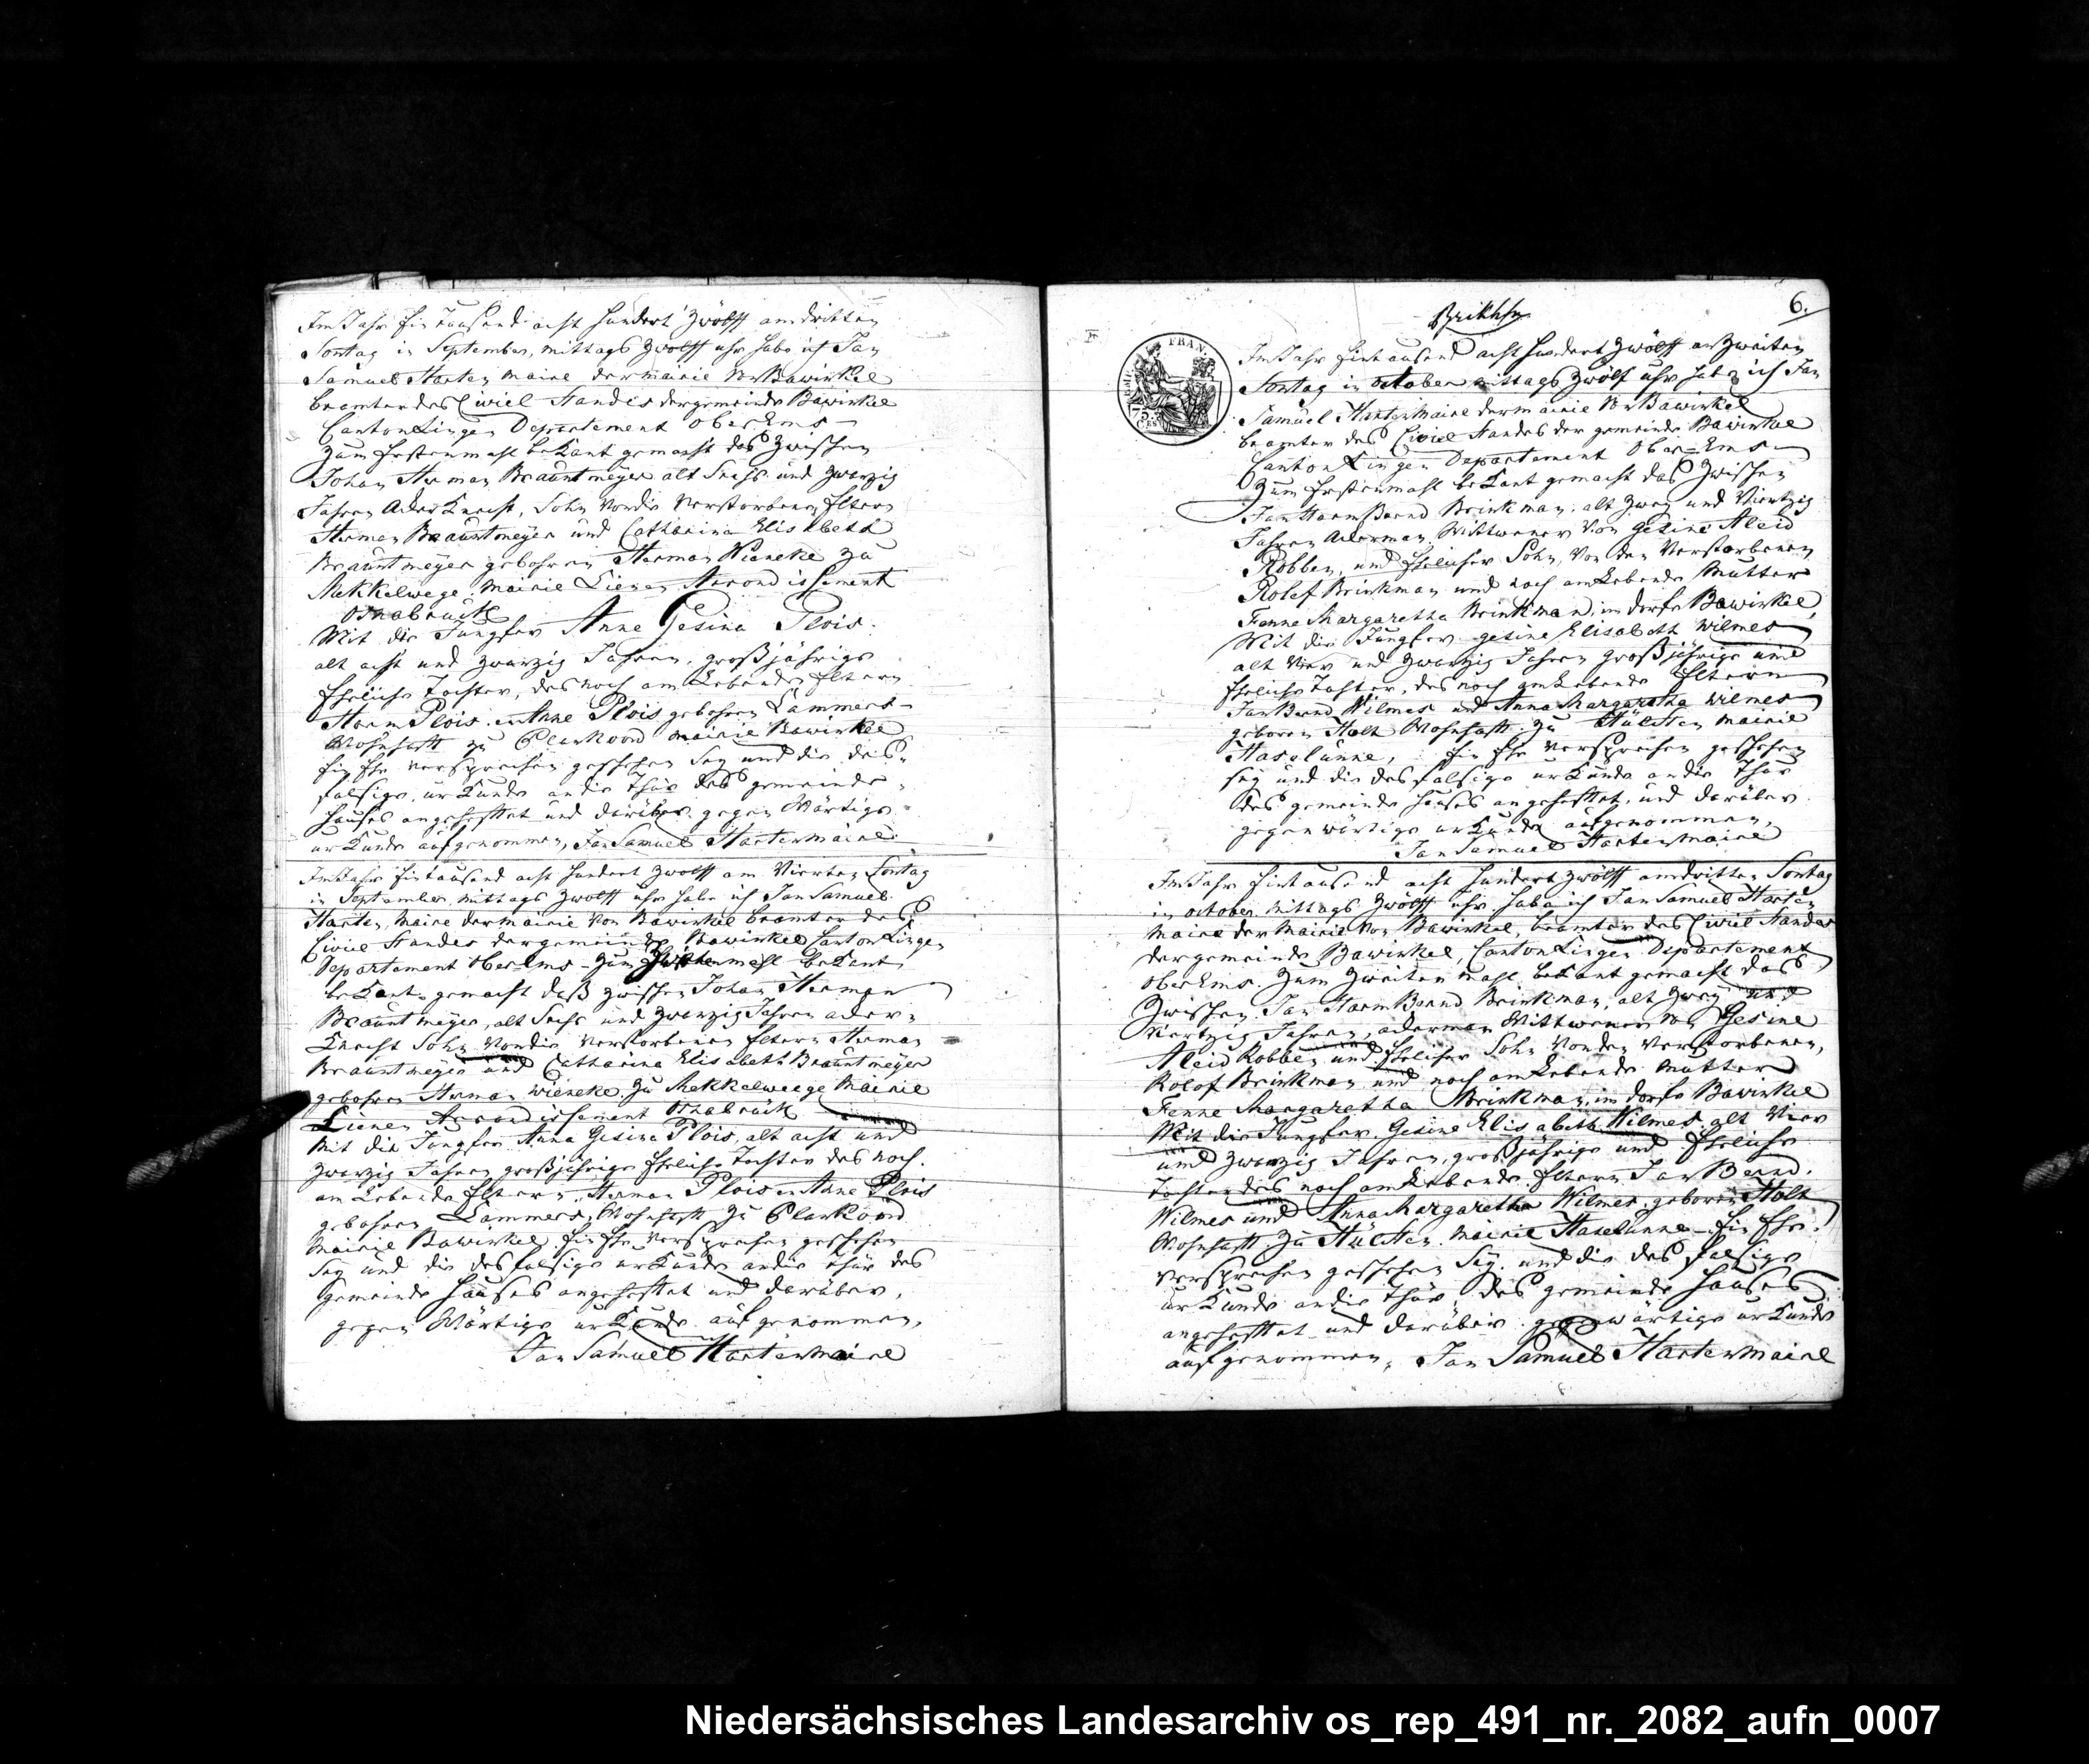 Im Jahr Ein Tausend acht hundert zwölff am dritten
Sontag in September, mittags zwolff uhr habe ich Jan
Samuel Harten Maire der mairie von Bawinkel
beamter des Civiel Standes der gemeinde Bawinkel
Canton Lingen Departement Ober Ems
zum Erstenmahl bekant gemacht das zwischen
Johan Herman Brauntmeyer alt Sechs und zwanzig
Jahren Acker Knecht, Sohn von die Verstorbenen Eltern
Herman Brauntmeyer und Catharina Elisabeth
Brauntmeyer gebohren Herman Wieneke zu
Mekkelwege Mairie Lienen Arrondissement
Osnabrück
Mit die Jungfer Anne Gesina Plois.
alt acht und zwanzig Jahren, großjährige
Eheliche Tochter, des noch am Lebende Eltern
Harm Plois en Anne Plois gebohren Lammers
Wohnhafft zu Plankoord mairie Bawinkel
Ein Ehe versprechen geschehen Sey und die des
falsige urkunde an die thür des gemeinde
Hauses angehefftet und darüber gegen Wärtige
urkunde aufgenommen, Jan Samuel Harten Maire
Im Jahr Eintausend acht hundert zwolff am Vierten Sontag
in September, mittags zwolff uhr habe ich Jan Samuel
Harten, Maire der mairie von Bawinkel beamter des
Civiel Standes der gemeinde Bawinkel Canton Lingen
Departement Ober Ems - zum Zweitenmahl bekant
bekant gemacht daß zwischen Johan Herman
Brauntmeyer, alt Sechs und zwanzig Jahren acker
Knecht Sohn von die verstorbenen Eltern Herman
Brauntmeyer und Catharina Elisabeth Brauntmeyer
gebohren Herman Wieneke zu Mekkelweege Mairie
Lienen Arrondissement Osnabrück
Mit die Jungfer Anna Gesina Plois, alt acht und
zwanzig Jahren großjährige Eheliche Tochter des noch
am Lebende Eltern, Herman Plois en Anne Plois
gebohren Lammers, Wohnhafft zu Plankoord
Mairie Bawinkel Ein Ehe versprechen geschehen
Sey und die desfalsige urkunde an die thür des
gemeinde Hauses angehefftet und darüber,
gegen Wärtige urkunde aufgenommen,
Jan Samuel Harten Maire
6.
FRAN.
75.
CES
Im Jahr Eintausend acht hundert zwölff am zweiten
Sontag in October mittags zwölf uhr habe ich Jan
Samuel Harten Maire der mairie von Bawinkel
beamter des Civiel Standes der gemeinde Bawinkel
Canton Lingen Departement Ober=Ems
Zum Erstenmahl bekant gemacht das zwischen
Jan Harm Bernd Brinkman, alt zwey und Viertzig
Jahren Ackerman Wittwener von Gesine Aleid
Robben, und Ehelicher Sohn, von den Verstorbenen
Rolef Brinkman und noch am Lebende Mutter
Fenne Margaretha Brinkman, im dorfe Bawinkel,
Mit die Jungfer gesine Elisabeth Wilmes
alt Vier und zwanzig Jahren großjährige und
Eheliche Tochter, des noch am Lebende Eltern
Jan Bernd Wilmes und Anna Margaretha Wilmes
geboren Holt Wohnhafft zu Hülsten Mairie
Haselünne, Ein Ehe versprechen geschehen
sey und die desfalsige urkunde an die Thür
des gemeinde Hauses angehefftet, und darüber
gegenwärtige urkunde aufgenommen,
Jan Samuel Harten Maire
Im Jahr Eintausend acht hundert zwölff am dritten Sontag
in october, mittags zwölff uhr habe ich Jan Samuel Harten
Maire der Mairie von Bawinkel, beamter des Civiel Standes
der gemeinde Bawinkel, Canton Lingen Departement
Ober Ems. Zum Zweiten mahl bekant gemacht das
Zwischen Jan Harm Bernd Brinkman, alt zwey und
viertzig Jahren, ackerman Wittwener von Gesine
Aleid Robben und Ehelicher Sohn von den verstorbenen,
Rolof Brinkman und noch am Lebende Mutter
Fenne Margaretha Brinkman, im dorfe Bawinkel
Mit die Jungfer Gesine Elisabeth Wilmes alt Vier
und zwanzig Jahren, großjährige und Eheliche
Tochter des noch am Lebende Eltern Jan Bernd
Wilmes und Anna Margaretha Wilmes geboren Holt
Wohnhafft zu Hülsten Mairie Haselünne Ein Ehe
versprechen geschehen Sey und die desfalsige
urkunde an die thür des gemeinde Hauses
angehefftet und darüber gegenwärtige urkunde
aufgenommen, Jan Samuel Harten Maire
Niedersächsisches Landesarchiv os_rep_491_nr._2082_aufn_0007